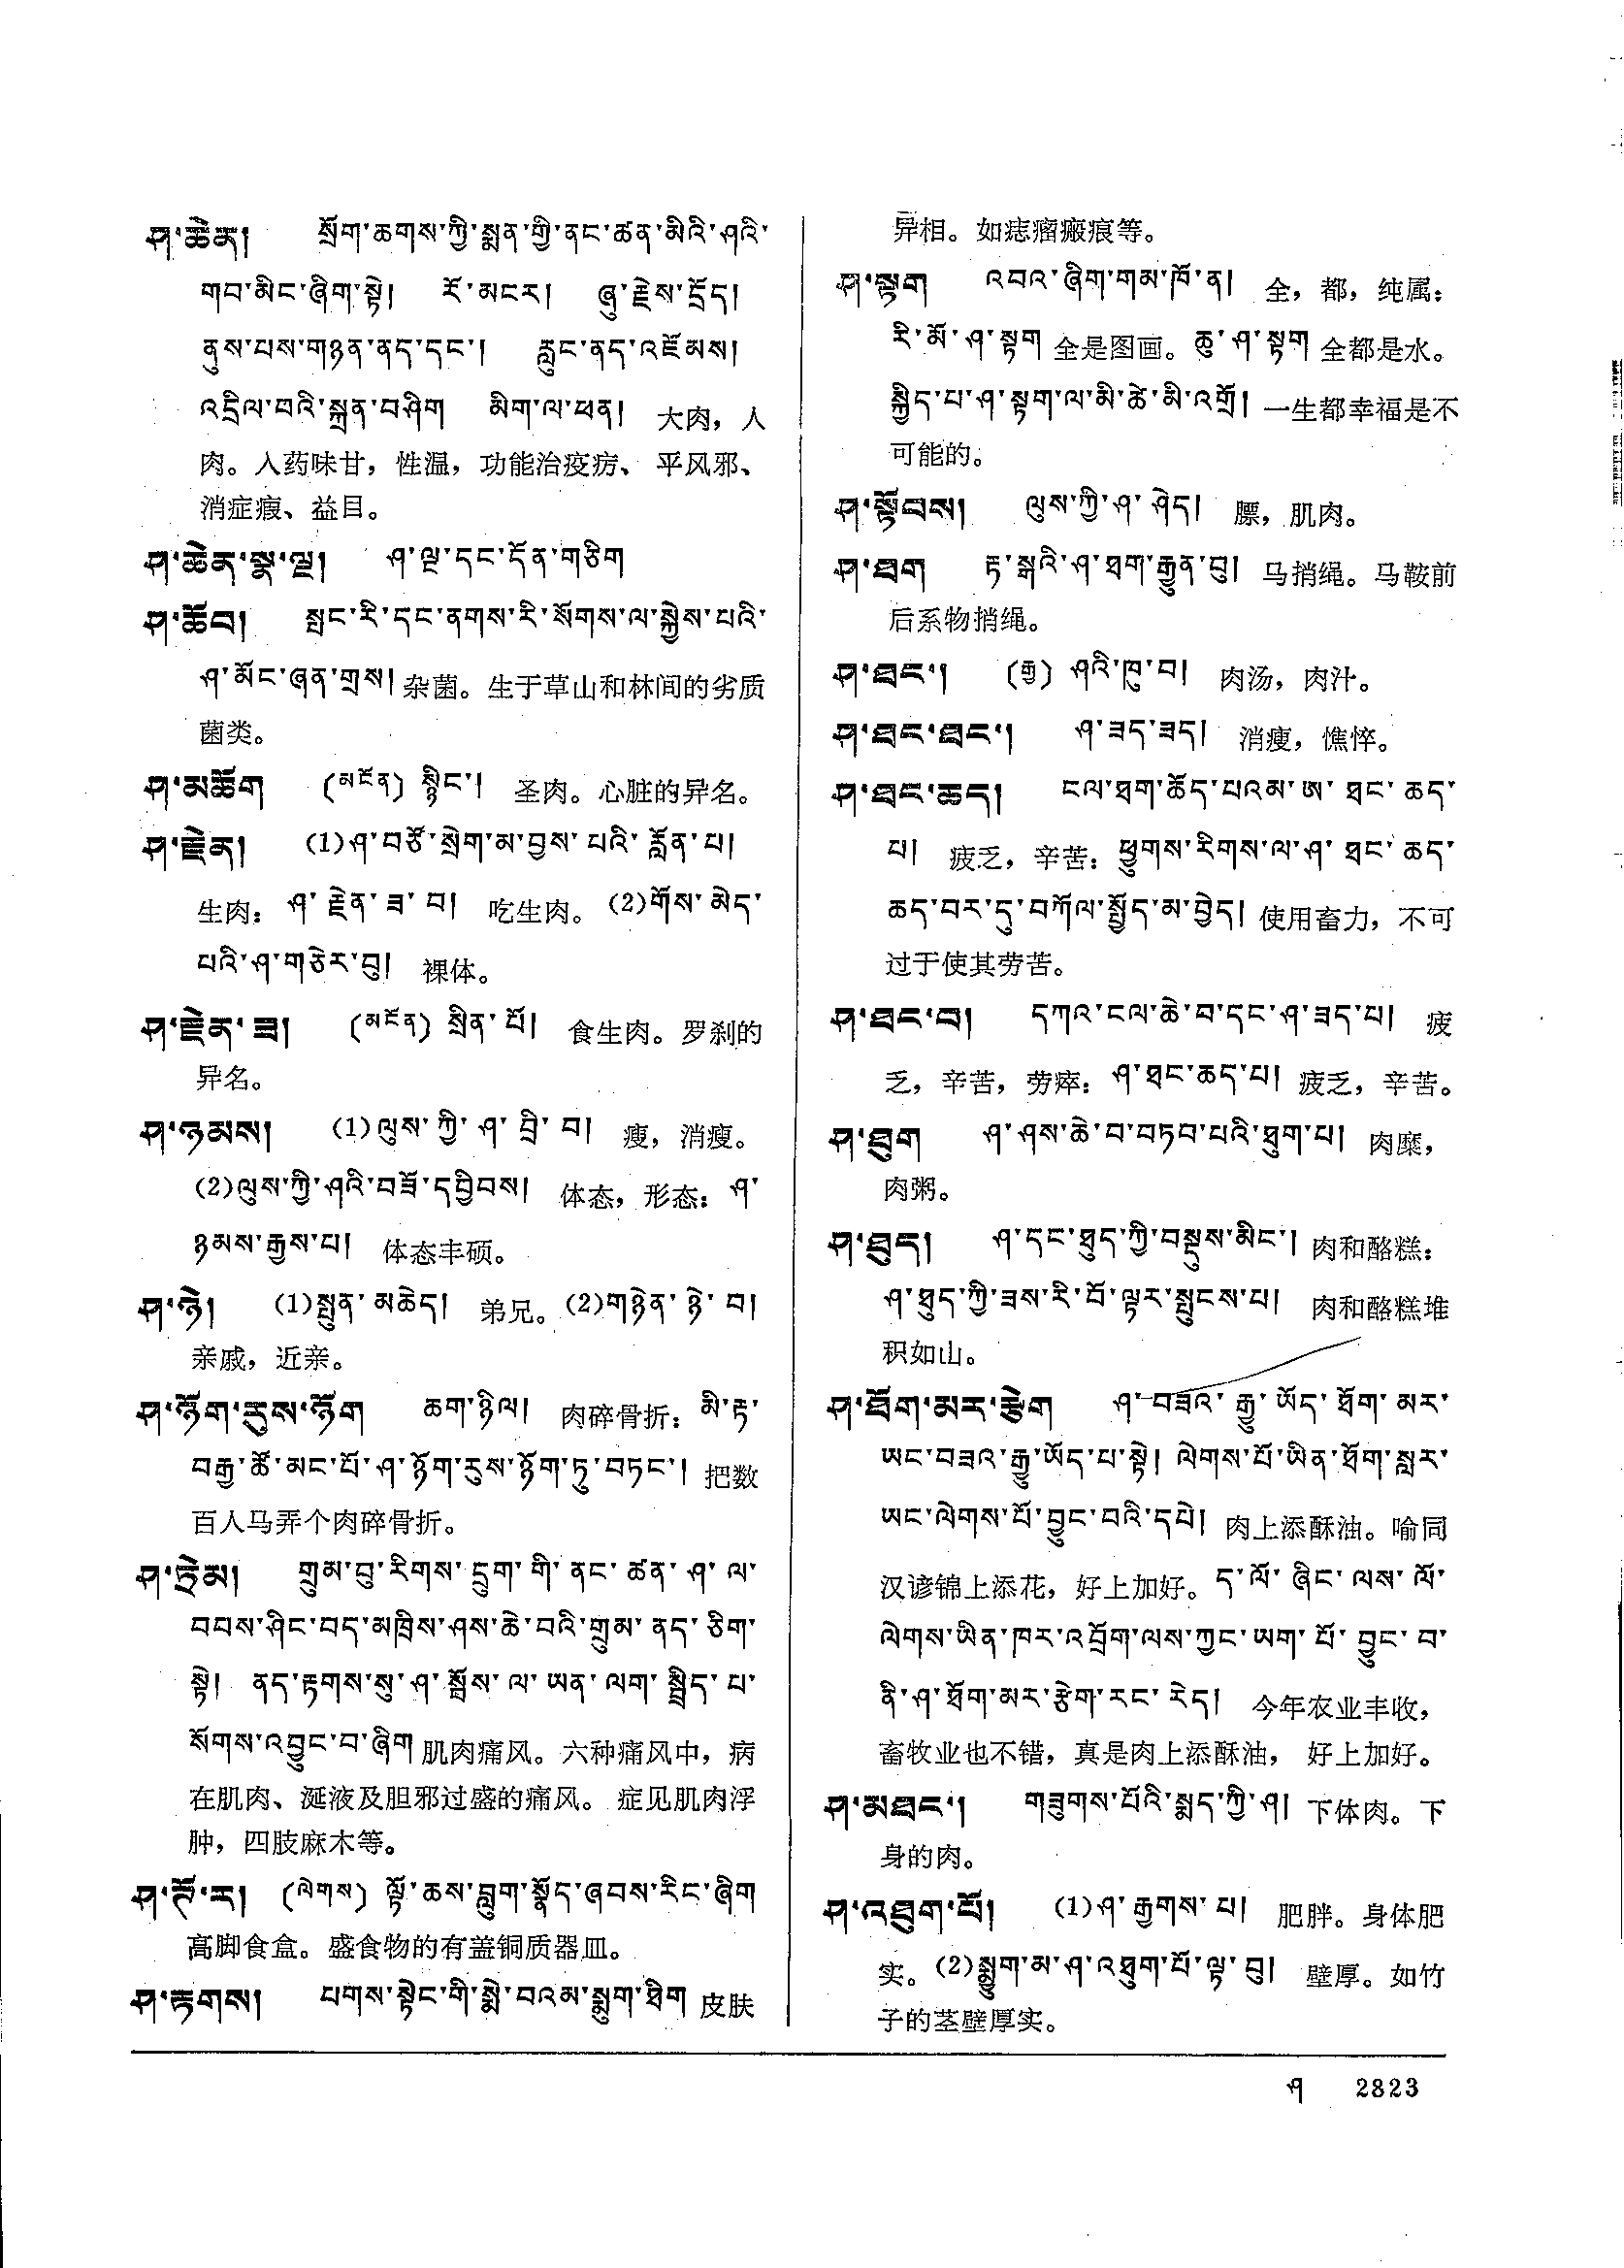 ཤ་ཆེན། སྲོག་ཆགས་ཀྱི་སྨན་གྱི་ནང་ཚན་མིའི་ཤའི་
གབ་མིང་ཞིག་སྟེ། རོ་མངར། ཞུ་རྗེས་དྲོད།
ནུས་པས་གཉན་ནད་དང་། རླུང་ནད་འཇོམས།
འདྲིལ་བའི་སྐྲན་བཤིག མིག་ལ་ཕན། 大肉，人
肉。入药味甘，性温，功能治疫疠、平风邪、
消症瘕、益目。
ཤ་ཆེན་སྣ་ལྔ། ཤ་ལྔ་དང་དོན་གཅིག
ཤ་ཆོབ། སྤང་རི་དང་ནགས་རི་སོགས་ལ་སྐྱེས་པའི་
ཤ་མོང་ཞན་གྲས། 杂菌。生于草山和林间的劣质
菌类。
ཤ་མཆོག (མངོན) སྙིང་། 圣肉。心脏的异名。
ཤ་རྗེན། (1)ཤ་བཙོ་སྲེག་མ་བྱས་པའི་རློན་པ།
生肉：ཤ་རྗེན་ཟ་བ། 吃生肉。(2)གོས་མེད་
པའི་ཤ་གཅེར་བུ། 裸体。
ཤ་རྗེན་ཟ། (མངོན) སྲིན་པོ། 食生肉。罗刹的
异名。
ཤ་ཉམས། (1)ལུས་ཀྱི་ཤ་བྲི་བ། 瘦，消瘦。
(2)ལུས་ཀྱི་ཤའི་བཟོ་དབྱིབས། 体态，形态：ཤ་
ཉམས་རྒྱས་པ། 体态丰硕。
ཤ་ཉེ། (1)སྤུན་མཆེད། 弟兄。(2)གཉེན་ཉེ་བ།
亲戚，近亲。
ཤ་ཉོག་རུས་ཉོག ཆག་ཉིལ། 肉碎骨折：མི་རྟ་
བརྒྱ་ཚོ་མང་པོ་ཤ་ཉོག་རུས་ཉོག་ཏུ་བཏང་། 把数
百人马弄个肉碎骨折。
ཤ་ཏྲེམ། གྲུམ་བུ་རིགས་དྲུག་གི་ནང་ཚན་ཤ་ལ་
བབས་ཤིང་བད་མཁྲིས་ཤས་ཆེ་བའི་གྲུམ་ནད་ཅིག་
སྟེ། ནད་རྟགས་སུ་ཤ་སྦོས་ལ་ཡན་ལག་སྦྲིད་པ་
སོགས་འབྱུང་བ་ཞིག 肌肉痛风。六种痛风中，病
在肌肉、涎液及胆邪过盛的痛风。症见肌肉浮
肿，四肢麻木等。
(ལེགས) ལྟོ་ཆས་བླུག་སྣོད་ཞབས་རིང་ཞིག
高脚食盒。盛食物的有盖铜质器皿。
ཤ་རྟགས། པགས་སྟེང་གི་སྨེ་བའམ་སྨུག་ཐིག 皮肤
异相。如痣瘤瘢痕等。
ཤ་སྟག འབའ་ཞིག་གམ་ཁོ་ན། 全，都，纯属：
རི་མོ་ཤ་སྟག 全是图画。ཆུ་ཤ་སྟག 全都是水。
སྐྱིད་པ་ཤ་སྟག་ལ་མི་ཚེ་མི་འགྲོ། 一生都幸福是不
可能的。
ཤ་སྟོབས། ལུས་ཀྱི་ཤ་ཤེད། 膘，肌肉。
ཤ་ཐག རྟ་སྒའི་ཤ་ཐག་རྒྱུན་བུ། 马捎绳。马鞍前
后系物捎绳。
ཤ་ཐང་། (རྒྱ) ཤའི་ཁུ་བ། 肉汤，肉汁。
ཤ་ཐང་ཐང་། ཤ་ཟད་ཟད། 消瘦，憔悴。
ཤ་ཐང་ཆད། ངལ་ཐག་ཆོད་པའམ་ཨ་ཐང་ཆད་
པ། 疲乏，辛苦：ཕྱུགས་རིགས་ལ་ཤ་ཐང་ཆད་
ཆད་བར་དུ་བཀོལ་སྤྱོད་མ་བྱེད། 使用畜力，不可
过于使其劳苦。
ཤ་ཐང་བ། དཀའ་ངལ་ཆེ་བ་དང་ཤ་ཟད་པ། 疲
乏，辛苦，劳瘁：ཤ་ཐང་ཆད་པ། 疲乏，辛苦。
ཤ་ཐུག ཤ་ཤས་ཆེ་བ་བཏབ་པའི་ཐུག་པ། 肉糜，
肉粥。
ཤ་ཐུད། ཤ་དང་ཐུད་ཀྱི་བསྡུས་མིང་། 肉和酪糕：
ཤ་ཐུད་ཀྱི་ཟས་རི་བོ་ལྟར་སྤུངས་པ། 肉和酪糕堆
积如山。
ཤ་ཐོག་མར་རྩེག ཤ་བཟའ་རྒྱུ་ཡོད་ཐོག་མར་
ཡང་བཟའ་རྒྱུ་ཡོད་པ་སྟེ། ལེགས་པོ་ཡིན་ཐོག་སླར་
ཡང་ལེགས་པོ་བྱུང་བའི་དཔེ། 肉上添酥油。喻同
汉谚锦上添花，好上加好。ད་ལོ་ཞིང་ལས་ལོ་
ལེགས་ཡིན་ཁར་འབྲོག་ལས་ཀྱང་ཡག་པོ་བྱུང་བ་
ནི་ཤ་ཐོག་མར་རྩེག་རང་རེད། 今年农业丰收，
畜牧业也不错，真是肉上添酥油，好上加好。
ཤ་མཐང་། གཟུགས་པོའི་སྨད་ཀྱི་ཤ། 下体肉。下
身的肉。
ཤ་འཐུག་པོ། (1)ཤ་རྒྱགས་པ། 肥胖。身体肥
实。(2)སྨྱུག་མ་ཤ་འཐུག་པོ་ལྟ་བུ། 壁厚。如竹
子的茎壁厚实。
ཤ 2823